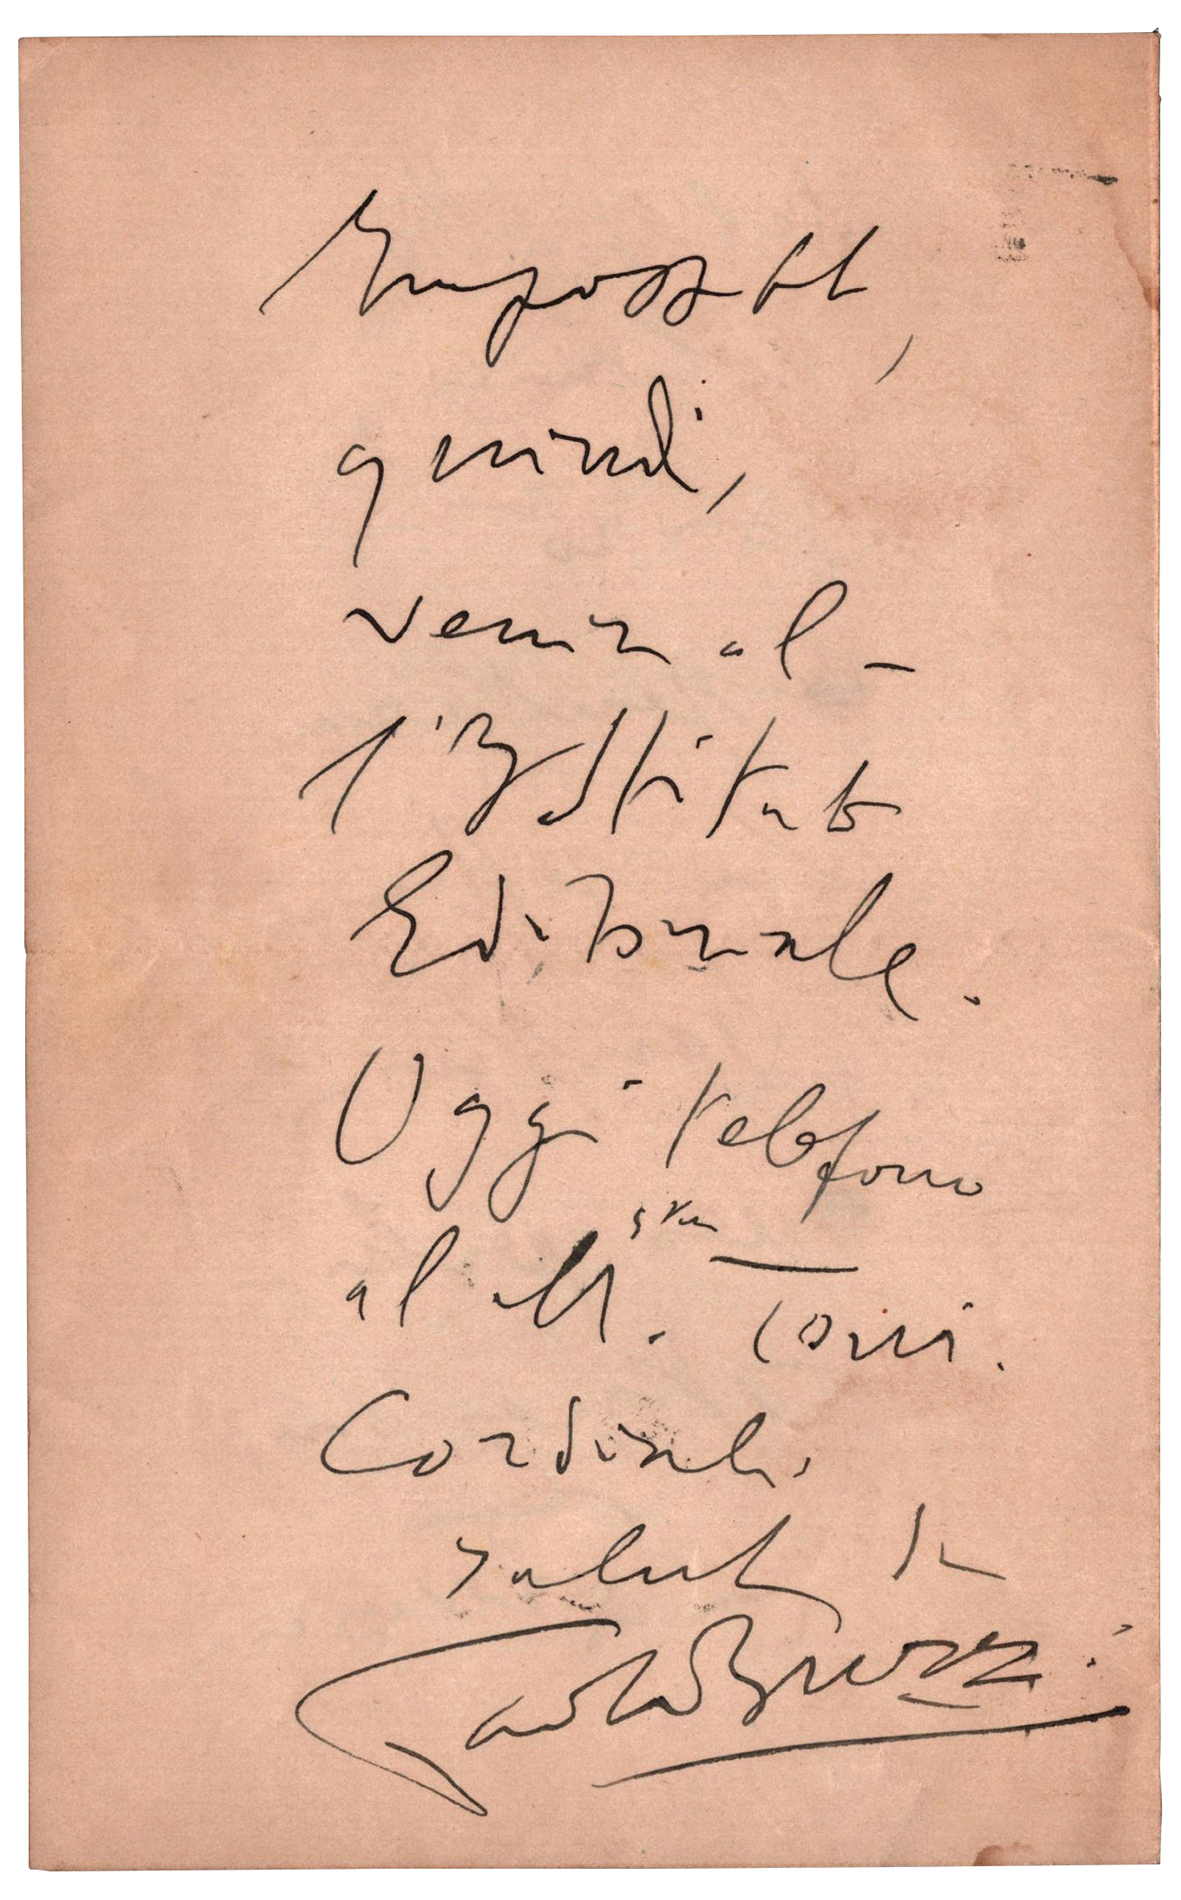 Impossibile,
quindi,
venire al-
l'Istituto
Editoriale.
Oggi telefono
al M.stro Torri.
Cordiali
saluti da
Paolo Buzzi